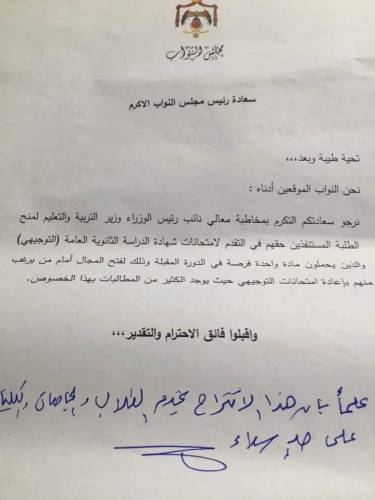 مجلس النواب
سعادة رئيس مجلس النواب الاكرم
تحية طيبة وبعد،،،
نحن النواب الموقعين أدناه :
نرجو سعادتكم التكرم بمخاطبة معالي نائب رئيس الوزراء وزير التربية والتعليم لمنح
الطلبة المستنفذين حقهم في التقدم لامتحانات شهادة الدراسة الثانوية العامة (التوجيهي)
والذين يحملون مادة واحدة فرصة في الدورة المقبلة وذلك لفتح المجال أمام من يرغب
منهم بإعادة امتحانات التوجيهي حيث يوجد الكثير من المطالبات بهذا الخصوص.
واقبلوا فائق الاحترام والتقدير،،،
علماً بأن هذا الاقتراح يخدم الطلاب والجامعات والكليات
على حد سواء